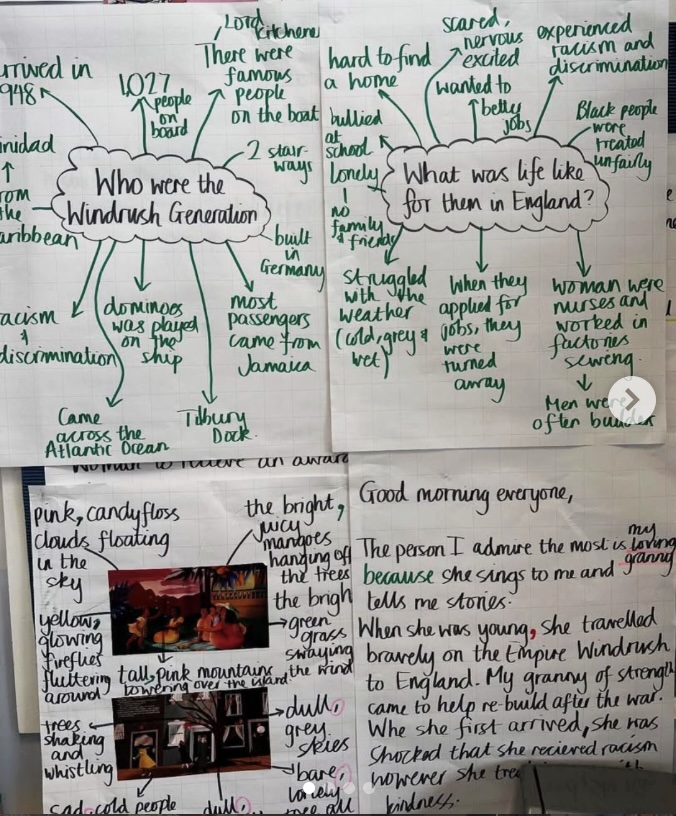 Who were the
Windrush Generation
arrived in
1948
1,027
people
on
board
Lord
Kitchener
There were
famous
people
on the boat
2 stair-
ways
built
in
Germany
most
passengers
came from
Jamaica
Tilbury
Dock.
dominoes
was played
on the
ship
Came
across the
Atlantic Ocean
racism
&
discrimination
Trinidad
from
the
Caribbean
What was life like
for them in England?
hard to find
a home
scared,
nervous
excited
wanted to
betty
jobs
experienced
racism and
discrimination
Black people
were
treated
unfairly
bullied
at
school
Lonely
no
family
& friends
Struggled
with the
weather
(cold, grey &
wet)
When they
applied for
jobs, they
were
turned
away
woman were
nurses and
worked in
factories
sewing.
Men were
often builder
woman to recieve an award
pink, candyfloss
clouds floating
in the
sky
the bright,
juicy
mangoes
hanging off
the trees
the brigh
green
grass
swaying
the wind
yellow,
glowing
fireflies
fluttering
around
tall, pink mountains
towering over the island
trees
shaking
and
whistling
dull,
grey
skies
bare,
lonely
tree all
sad, cold people
dull,
Good morning everyone,
The person I admire the most is my loving granny
because she sings to me and
tells me stories.
When she was young, she travelled
bravely on the Empire Windrush
to England. My granny of strength
came to help re-build after the war.
Whe she first arrived, she was
shocked that she recieved racism
however she
kindness.